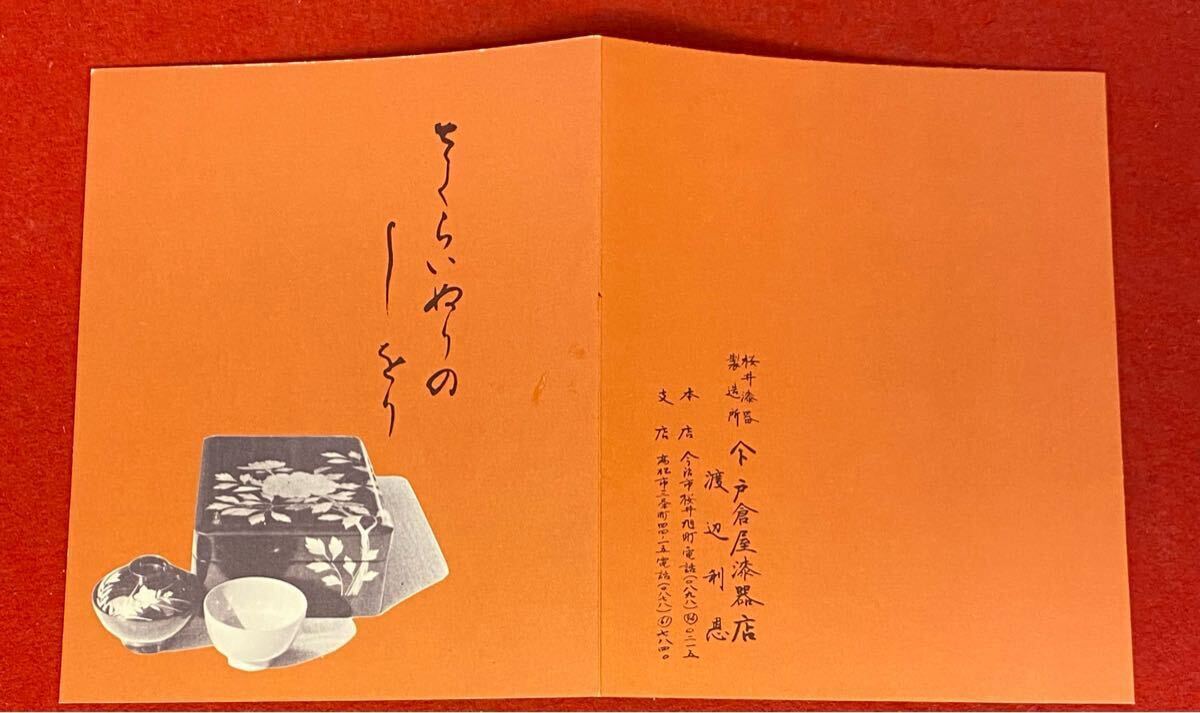 さくらいぬりの
しをり
桜井漆器
製造所
戸倉屋漆器店
渡辺利恩
本店 今治市桜井旭町電話(〇八九八)(48)〇二一五
支店 高松市二番町四四・一五電話(〇八七八)(61)七八四〇